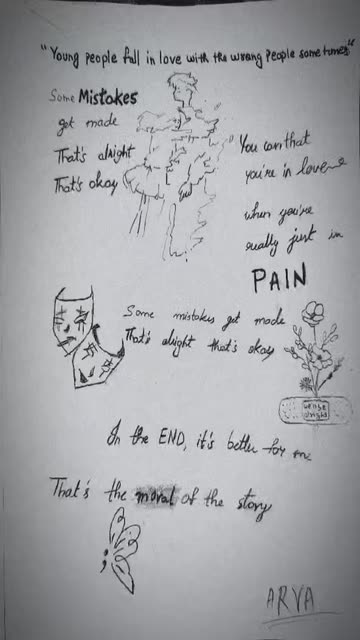 "Young people fall in love with the wrong people sometimes"
Some Mistakes
get made
That's alright
That's okay
You can that
you're in love
when you're
really just in
PAIN
Some mistakes get made
That's alright that's okay
In the END, it's better for me
That's the moral of the story
ARVA